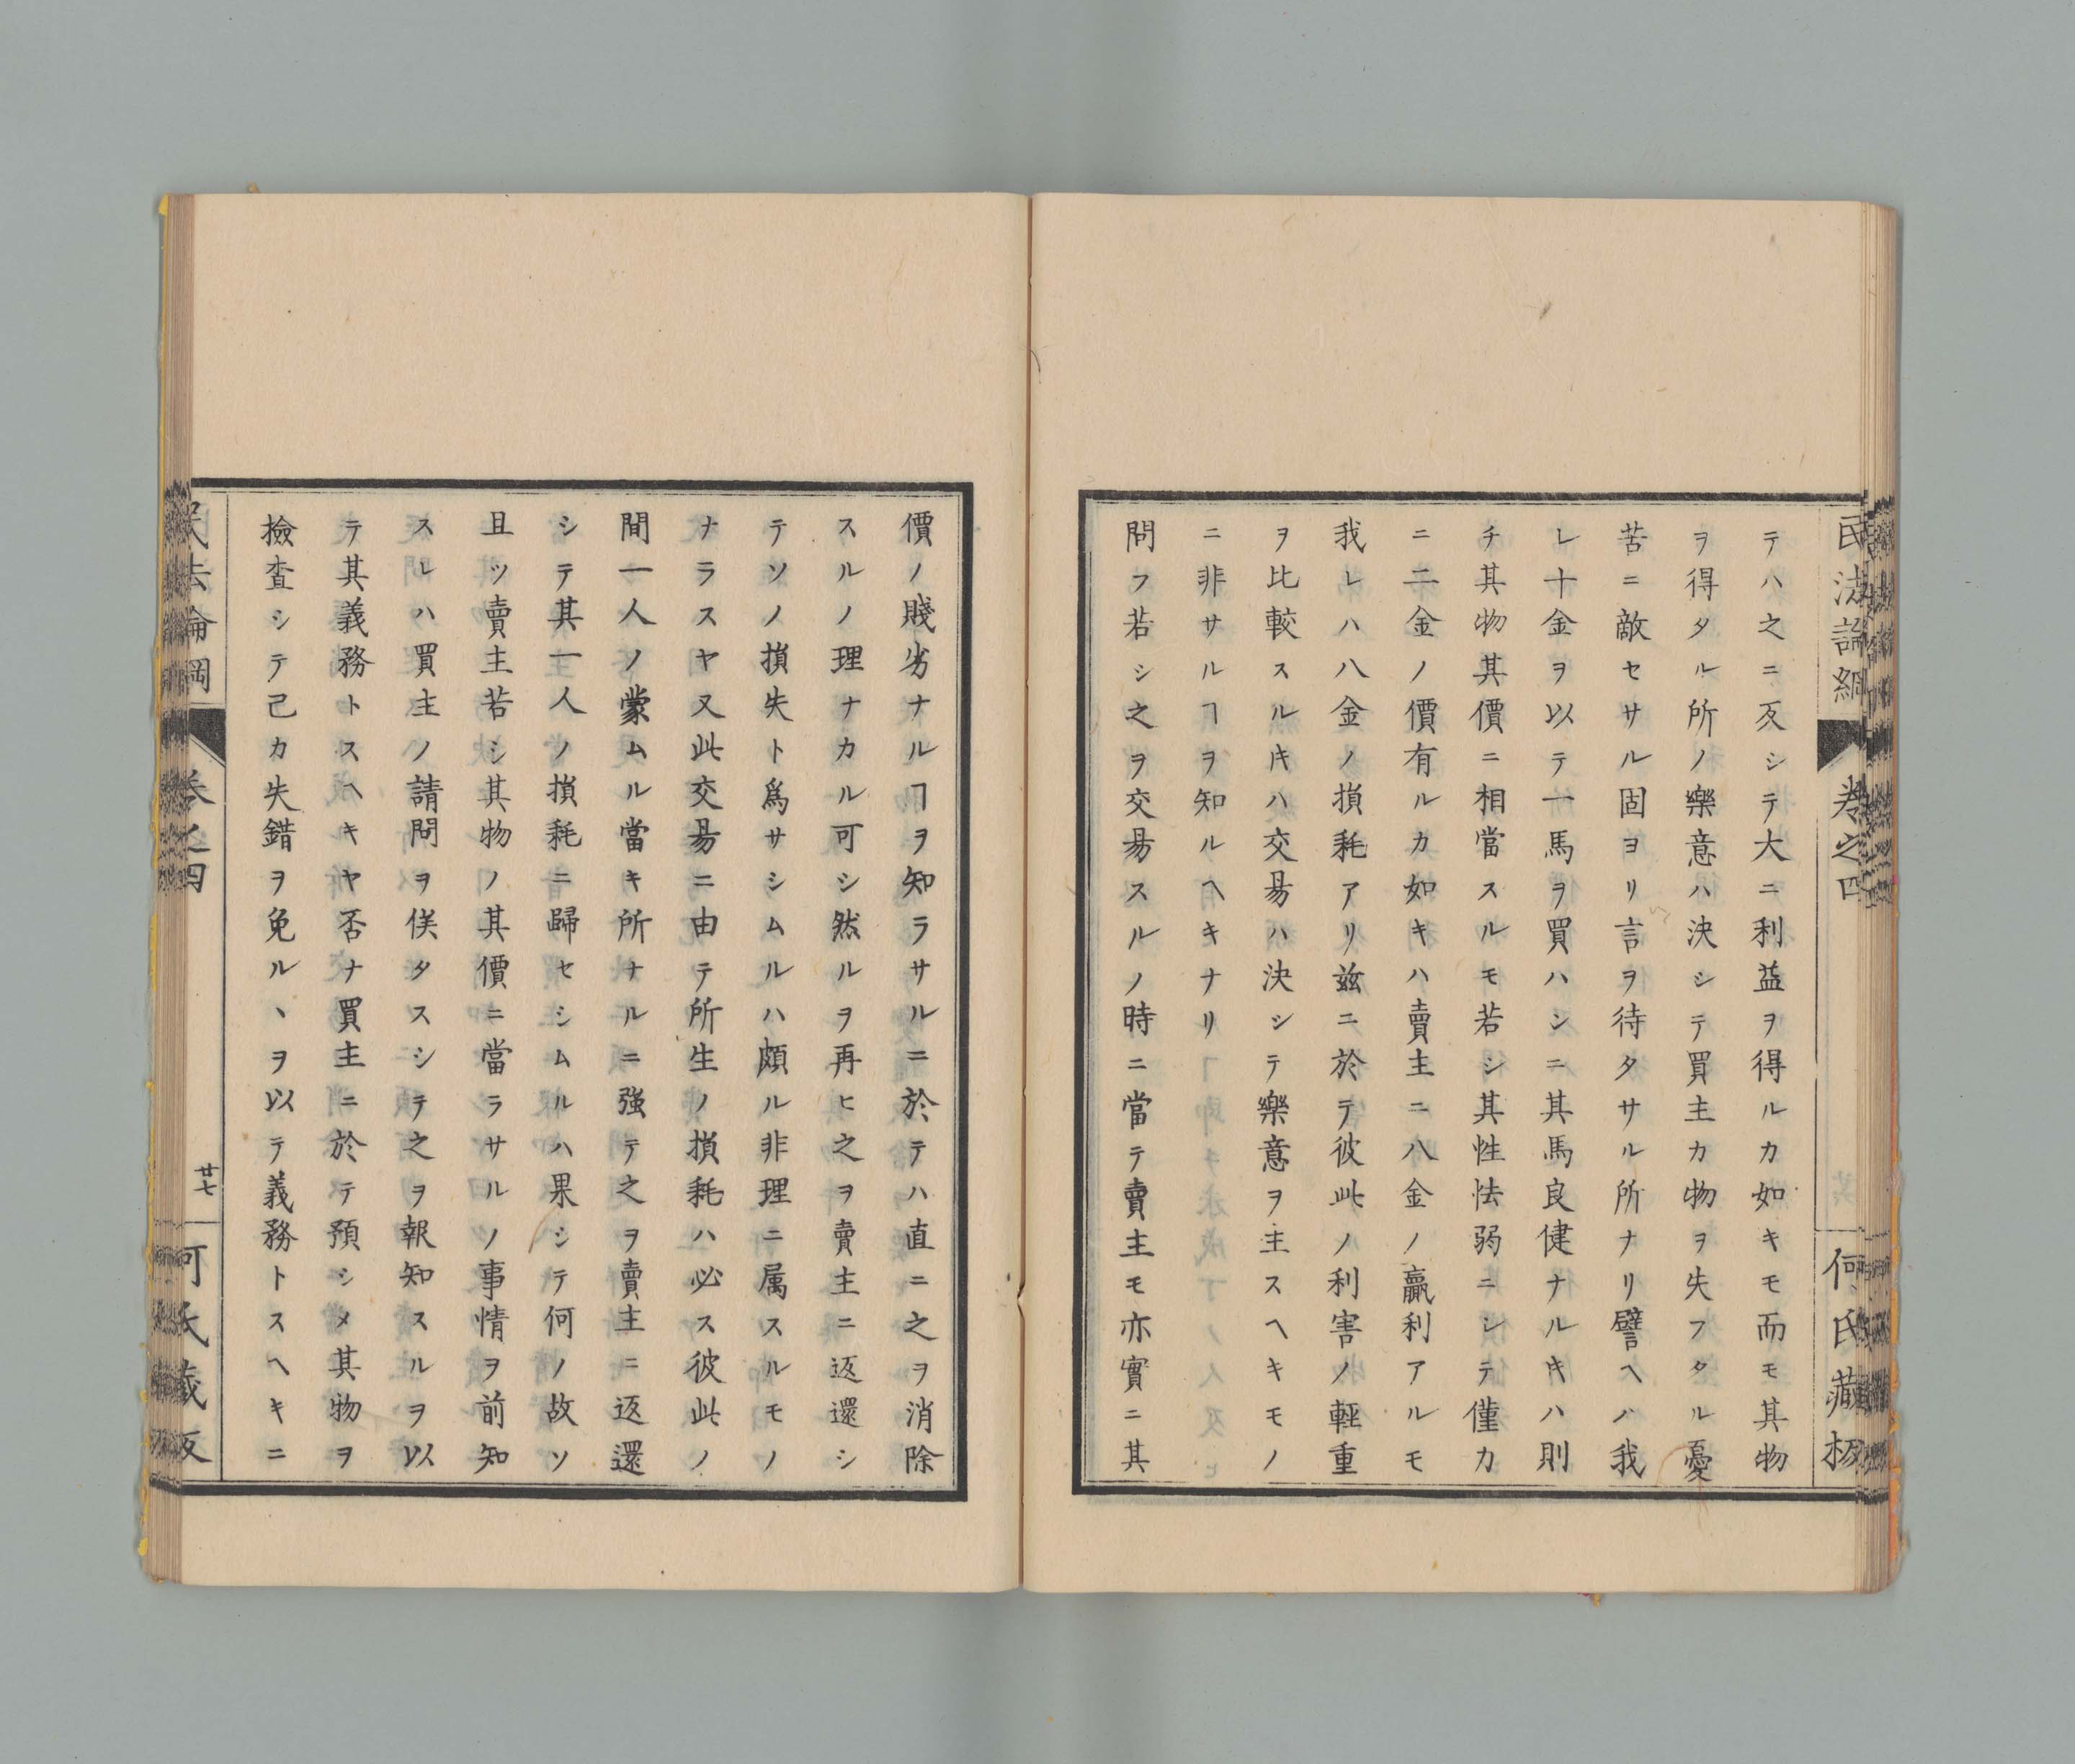 民法論綱 巻之四 何氏藏板
テハ之ニ反シテ大ニ利益ヲ得ルカ如キモ而モ其物
ヲ得タル所ノ樂意ハ決シテ買主カ物ヲ失フタル憂
苦ニ敵セサル固ヨリ言ヲ待タサル所ナリ譬ヘハ我
レ十金ヲ以テ一馬ヲ買ハシニ其馬良健ナルキハ則
チ其物其價ニ相當スルモ若シ其性怯弱ニシテ僅カ
ニ二金ノ價有ルカ如キハ賣主ニ八金ノ贏利アルモ
我レハ八金ノ損耗アリ玆ニ於テ彼此ノ利害ノ輕重
ヲ比較スルキハ交易ハ決シテ樂意ヲ主スヘキモノ
ニ非サルヿヲ知ルヘキナリ
問フ若シ之ヲ交易スルノ時ニ當テ賣主モ亦實ニ其
價ノ賤劣ナルヿヲ知ラサルニ於テハ直ニ之ヲ消除
スルノ理ナカル可シ然ルヲ再ヒ之ヲ賣主ニ返還シ
テソノ損失ト爲サシムルハ頗ル非理ニ属スルモノ
ナラスヤ又此交易ニ由テ所生ノ損耗ハ必ス彼此ノ
間一人ノ蒙ムル當キ所ナルニ強テ之ヲ賣主ニ返還
シテ其一人ノ損耗ニ歸セシムルハ果シテ何ノ故ソ
且ッ賣主若シ其物ノ其價ニ當ラサルノ事情ヲ前知
スレハ買主ノ請問ヲ俟タスシテ之ヲ報知スルヲ以
テ其義務トスヘキヤ否ナ買主ニ於テ預シメ其物ヲ
撿査シテ己カ失錯ヲ免ルヽヲ以テ義務トスヘキニ
民法論綱 巻之四 廿七 何氏藏板